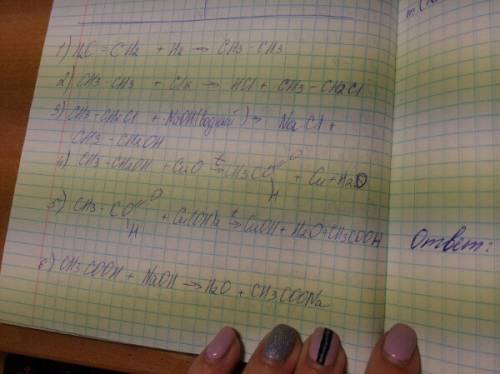 1) H2C = CH2 + H2 → CH3 - CH3
2) CH3 - CH3 + Cl2 → HCl + CH3 - CH2Cl
3) CH3 - CH2Cl + NaOH (водный) → NaCl +
CH3 - CH2OH
4) CH3 - CH2OH + CuO t→ CH3CO O H + Cu + H2O
5) CH3 - CO O H + Cu(OH)2 t→ CuOH + H2O + CH3COOH
Ответ:
6) CH3COOH + NaOH → H2O + CH3COONa